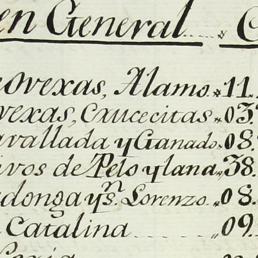 en General ..... „ C
ovexas, Alamo. „ 11.
vexas, Crucecitas „ 03.
avallada y Ganado. 08.
ivos de Pelo y lana „ 38.
adonga y Sn. Lorenzo. „ 08.
Catalina ....... „ 09.